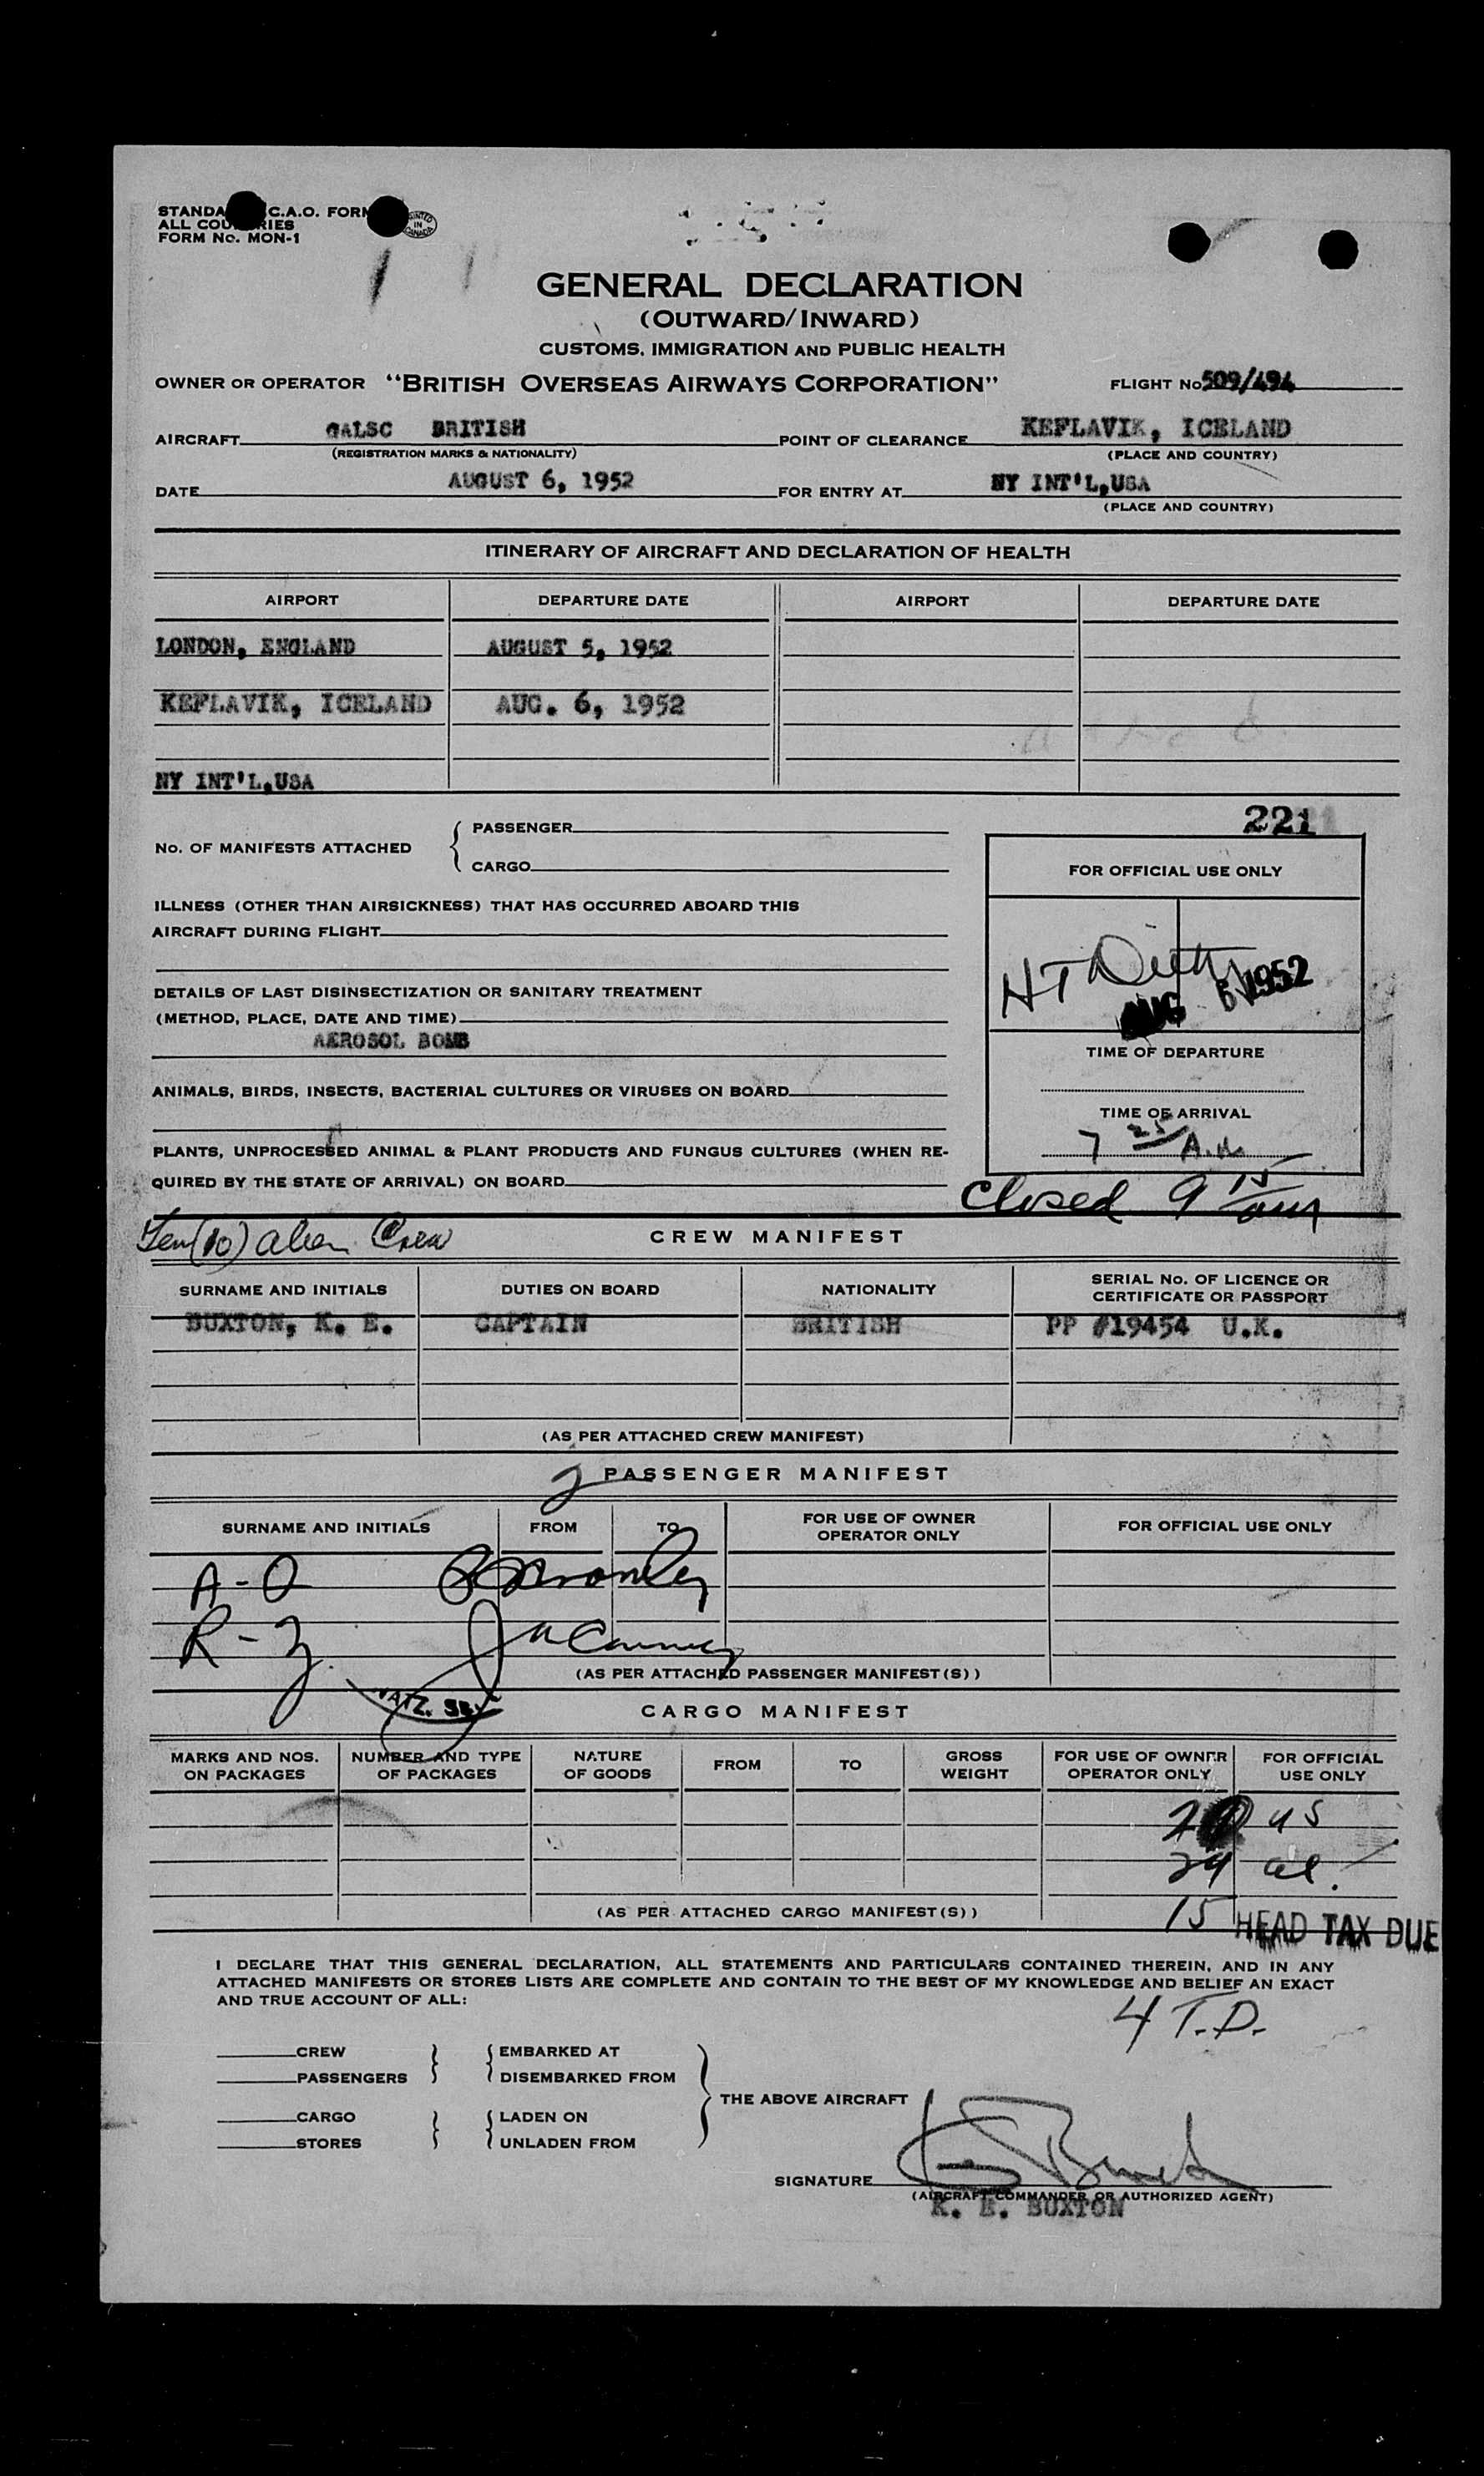 STANDA C.A.O. FORM
ALL COU RIES
FORM No. MON-1
PRINTED IN CANADA
GENERAL DECLARATION
(OUTWARD/INWARD)
CUSTOMS, IMMIGRATION AND PUBLIC HEALTH
OWNER OR OPERATOR "BRITISH OVERSEAS AIRWAYS CORPORATION" FLIGHT No 509/494
AIRCRAFT GALSC BRITISH POINT OF CLEARANCE KEFLAVIK, ICELAND
(REGISTRATION MARKS & NATIONALITY) (PLACE AND COUNTRY)
DATE AUGUST 6, 1952 FOR ENTRY AT NY INT'L,USA
(PLACE AND COUNTRY)
ITINERARY OF AIRCRAFT AND DECLARATION OF HEALTH
AIRPORT DEPARTURE DATE AIRPORT DEPARTURE DATE
LONDON, ENGLAND AUGUST 5, 1952
KEFLAVIK, ICELAND AUG. 6, 1952
NY INT'L,USA
221
No. OF MANIFESTS ATTACHED { PASSENGER
CARGO
FOR OFFICIAL USE ONLY
ILLNESS (OTHER THAN AIRSICKNESS) THAT HAS OCCURRED ABOARD THIS
AIRCRAFT DURING FLIGHT
AUG 6 1952
DETAILS OF LAST DISINSECTIZATION OR SANITARY TREATMENT
(METHOD, PLACE, DATE AND TIME)
AEROSOL BOMB
TIME OF DEPARTURE
ANIMALS, BIRDS, INSECTS, BACTERIAL CULTURES OR VIRUSES ON BOARD
TIME OF ARRIVAL
7 25 A.M.
PLANTS, UNPROCESSED ANIMAL & PLANT PRODUCTS AND FUNGUS CULTURES (WHEN RE-
QUIRED BY THE STATE OF ARRIVAL) ON BOARD
Closed 9 15 am
Ten (10) alien Crew
CREW MANIFEST
SURNAME AND INITIALS DUTIES ON BOARD NATIONALITY SERIAL No. OF LICENCE OR CERTIFICATE OR PASSPORT
BUXTON, K. E. CAPTAIN BRITISH PP #19454 U.K.
(AS PER ATTACHED CREW MANIFEST)
2 PASSENGER MANIFEST
SURNAME AND INITIALS FROM TO FOR USE OF OWNER OPERATOR ONLY FOR OFFICIAL USE ONLY
A-Q
R-Z
(AS PER ATTACHED PASSENGER MANIFEST(S))
NATZ. SE
CARGO MANIFEST
MARKS AND NOS. ON PACKAGES NUMBER AND TYPE OF PACKAGES NATURE OF GOODS FROM TO GROSS WEIGHT FOR USE OF OWNER OPERATOR ONLY FOR OFFICIAL USE ONLY
US
24 al.
(AS PER ATTACHED CARGO MANIFEST(S))
15 HEAD TAX DUE
I DECLARE THAT THIS GENERAL DECLARATION, ALL STATEMENTS AND PARTICULARS CONTAINED THEREIN, AND IN ANY
ATTACHED MANIFESTS OR STORES LISTS ARE COMPLETE AND CONTAIN TO THE BEST OF MY KNOWLEDGE AND BELIEF AN EXACT
AND TRUE ACCOUNT OF ALL:
4 T.D.
CREW } { EMBARKED AT
PASSENGERS DISEMBARKED FROM
THE ABOVE AIRCRAFT
CARGO } { LADEN ON
STORES UNLADEN FROM
SIGNATURE
(AIRCRAFT COMMANDER OR AUTHORIZED AGENT)
K. E. BUXTON